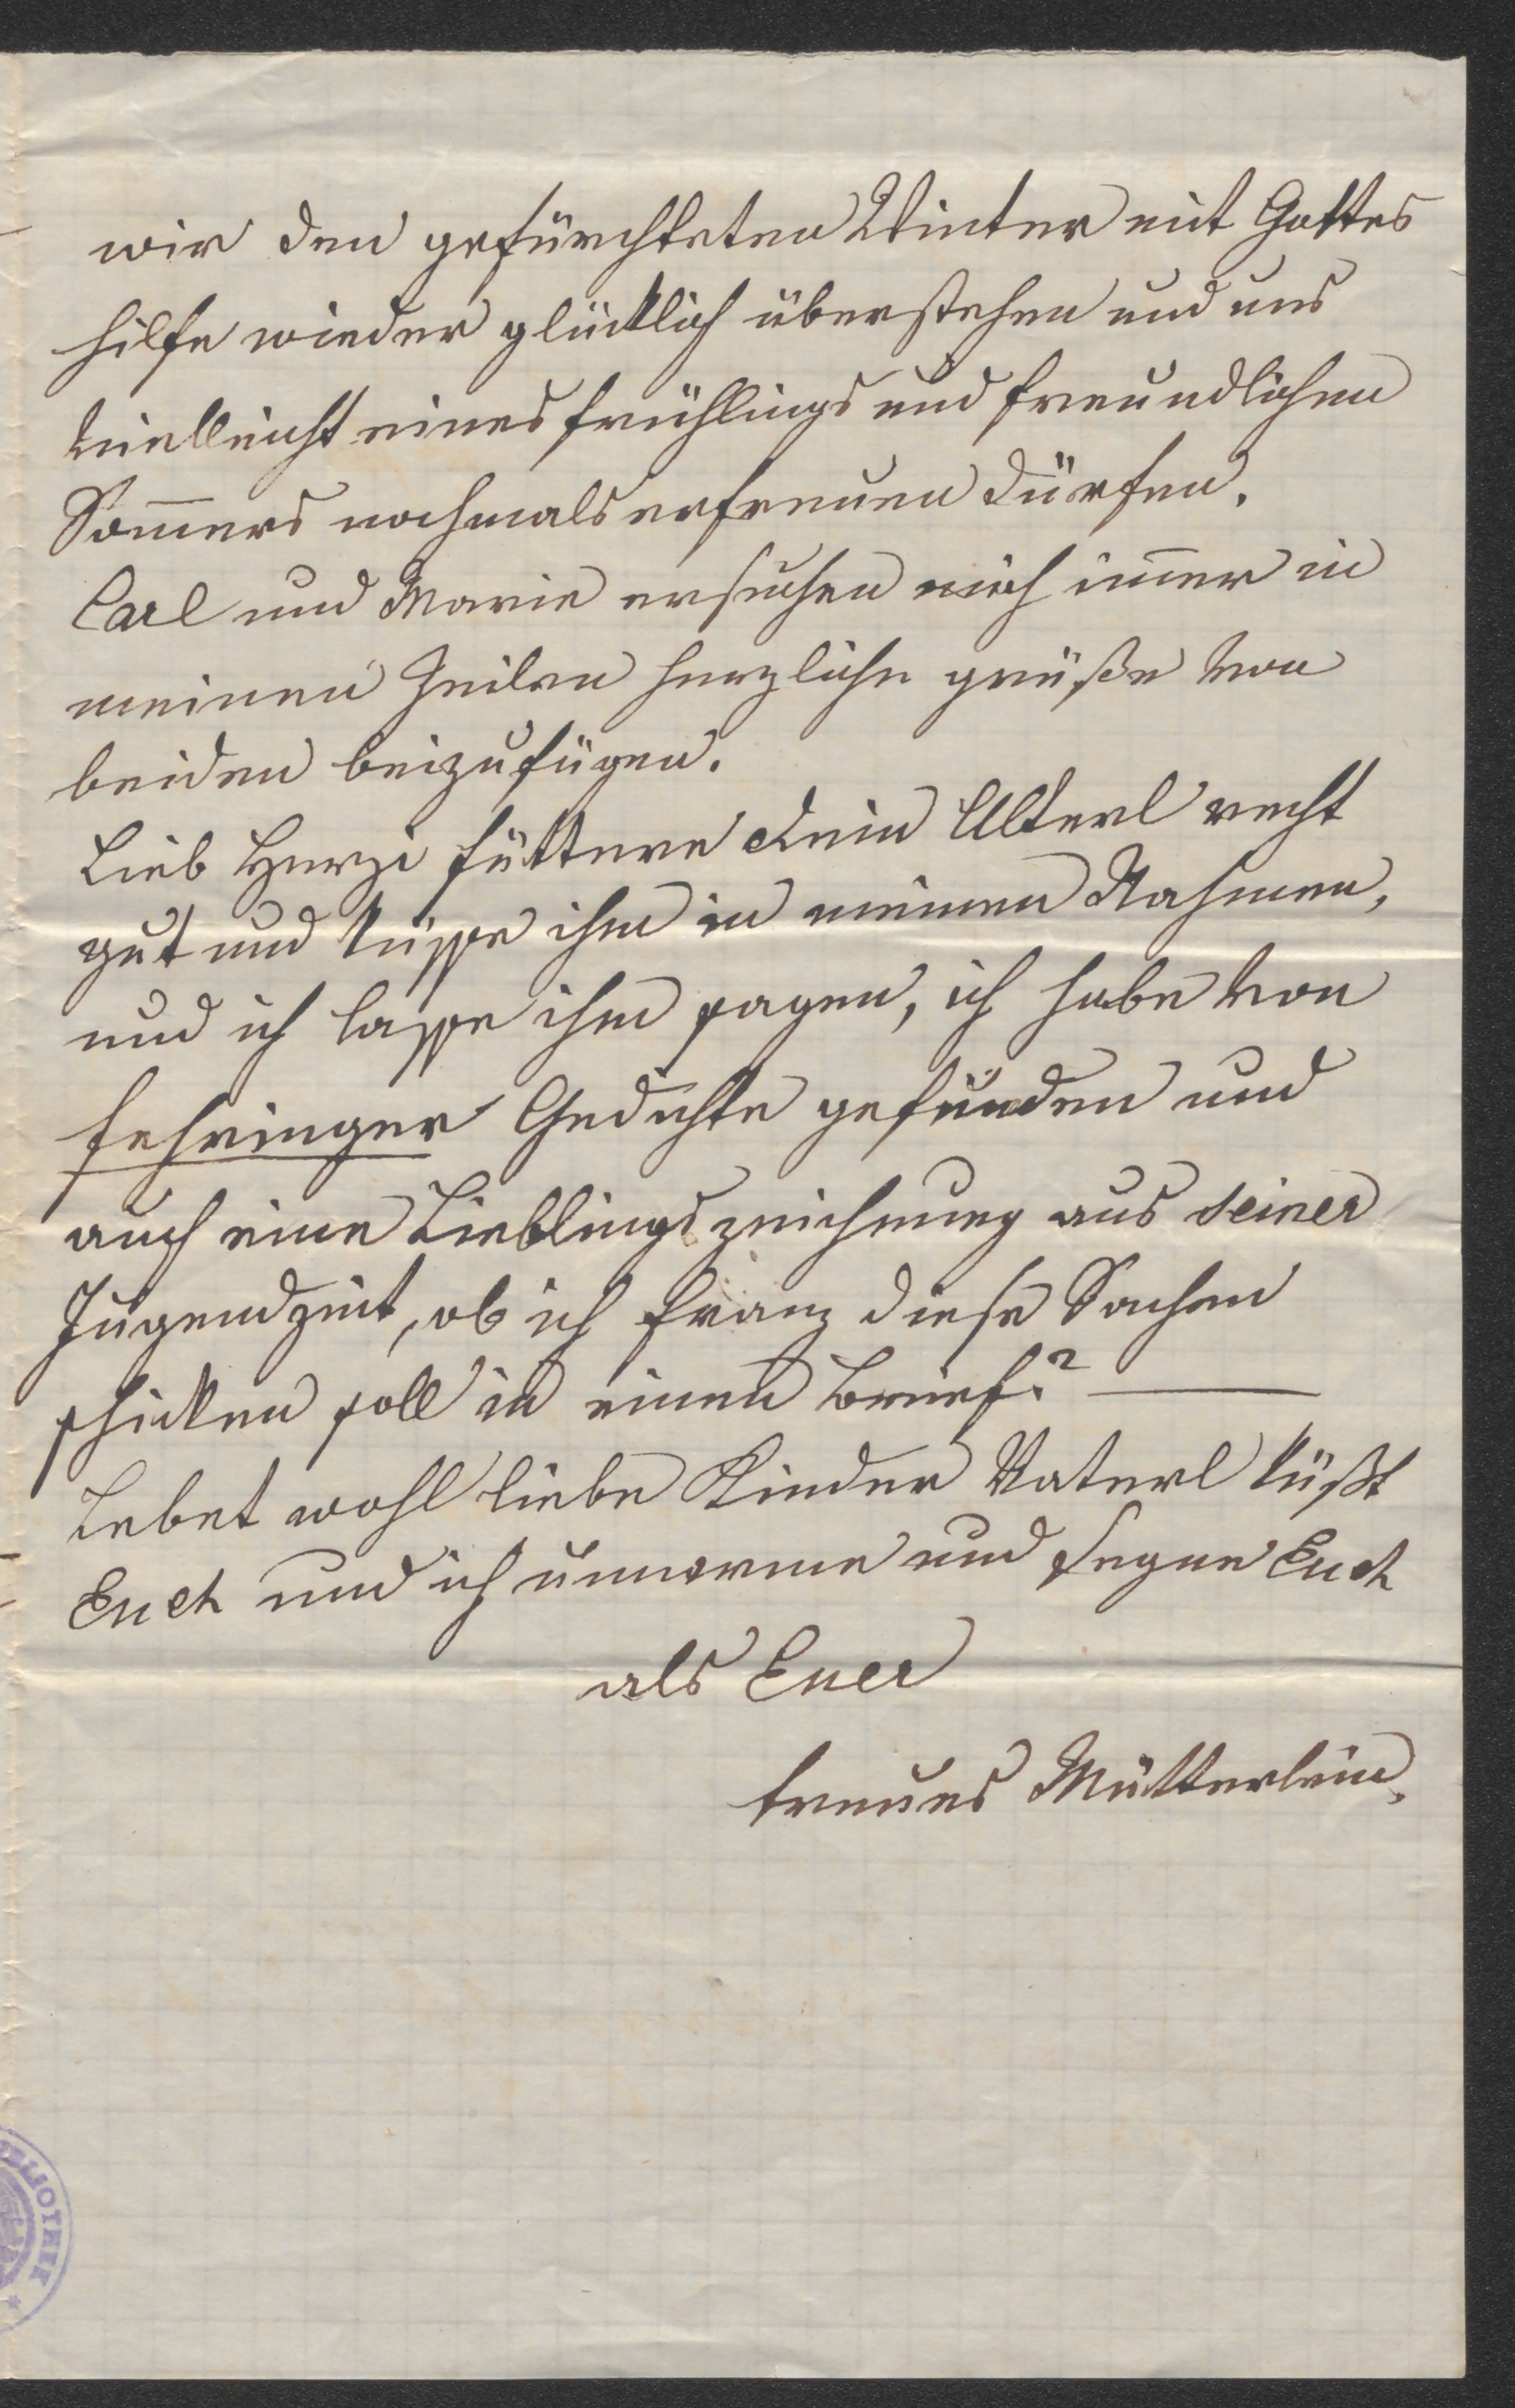 wir den gefürchteten Winter mit Gottes
hilfe wieder glücklich überstehen und uns
vielleicht eines frühlings und freundlichen
Som̅ers nochmals erfreuen dürfen.
Carl und Marie ersuchen mich im̅er in
meinen Zeilen herzliche grüße von
beiden beizufügen.
Lieb Herzi füttere dein Alterl recht
gut und küsse ihm in meinen Nahmen,
und ich lasse ihm sagen, ich habe von
Fehringer Gedichte gefunden und
auch eine Lieblingszeichnung aus seiner
Jugendzeit, ob ich Franz diese Sachen
schicken soll in einen Brief? —
Lebet wohl liebe Kinder Vaterl küßt
Euch und ich umarme und segne Euch
als Euer
treues Mütterlein.
BLIOTHEK